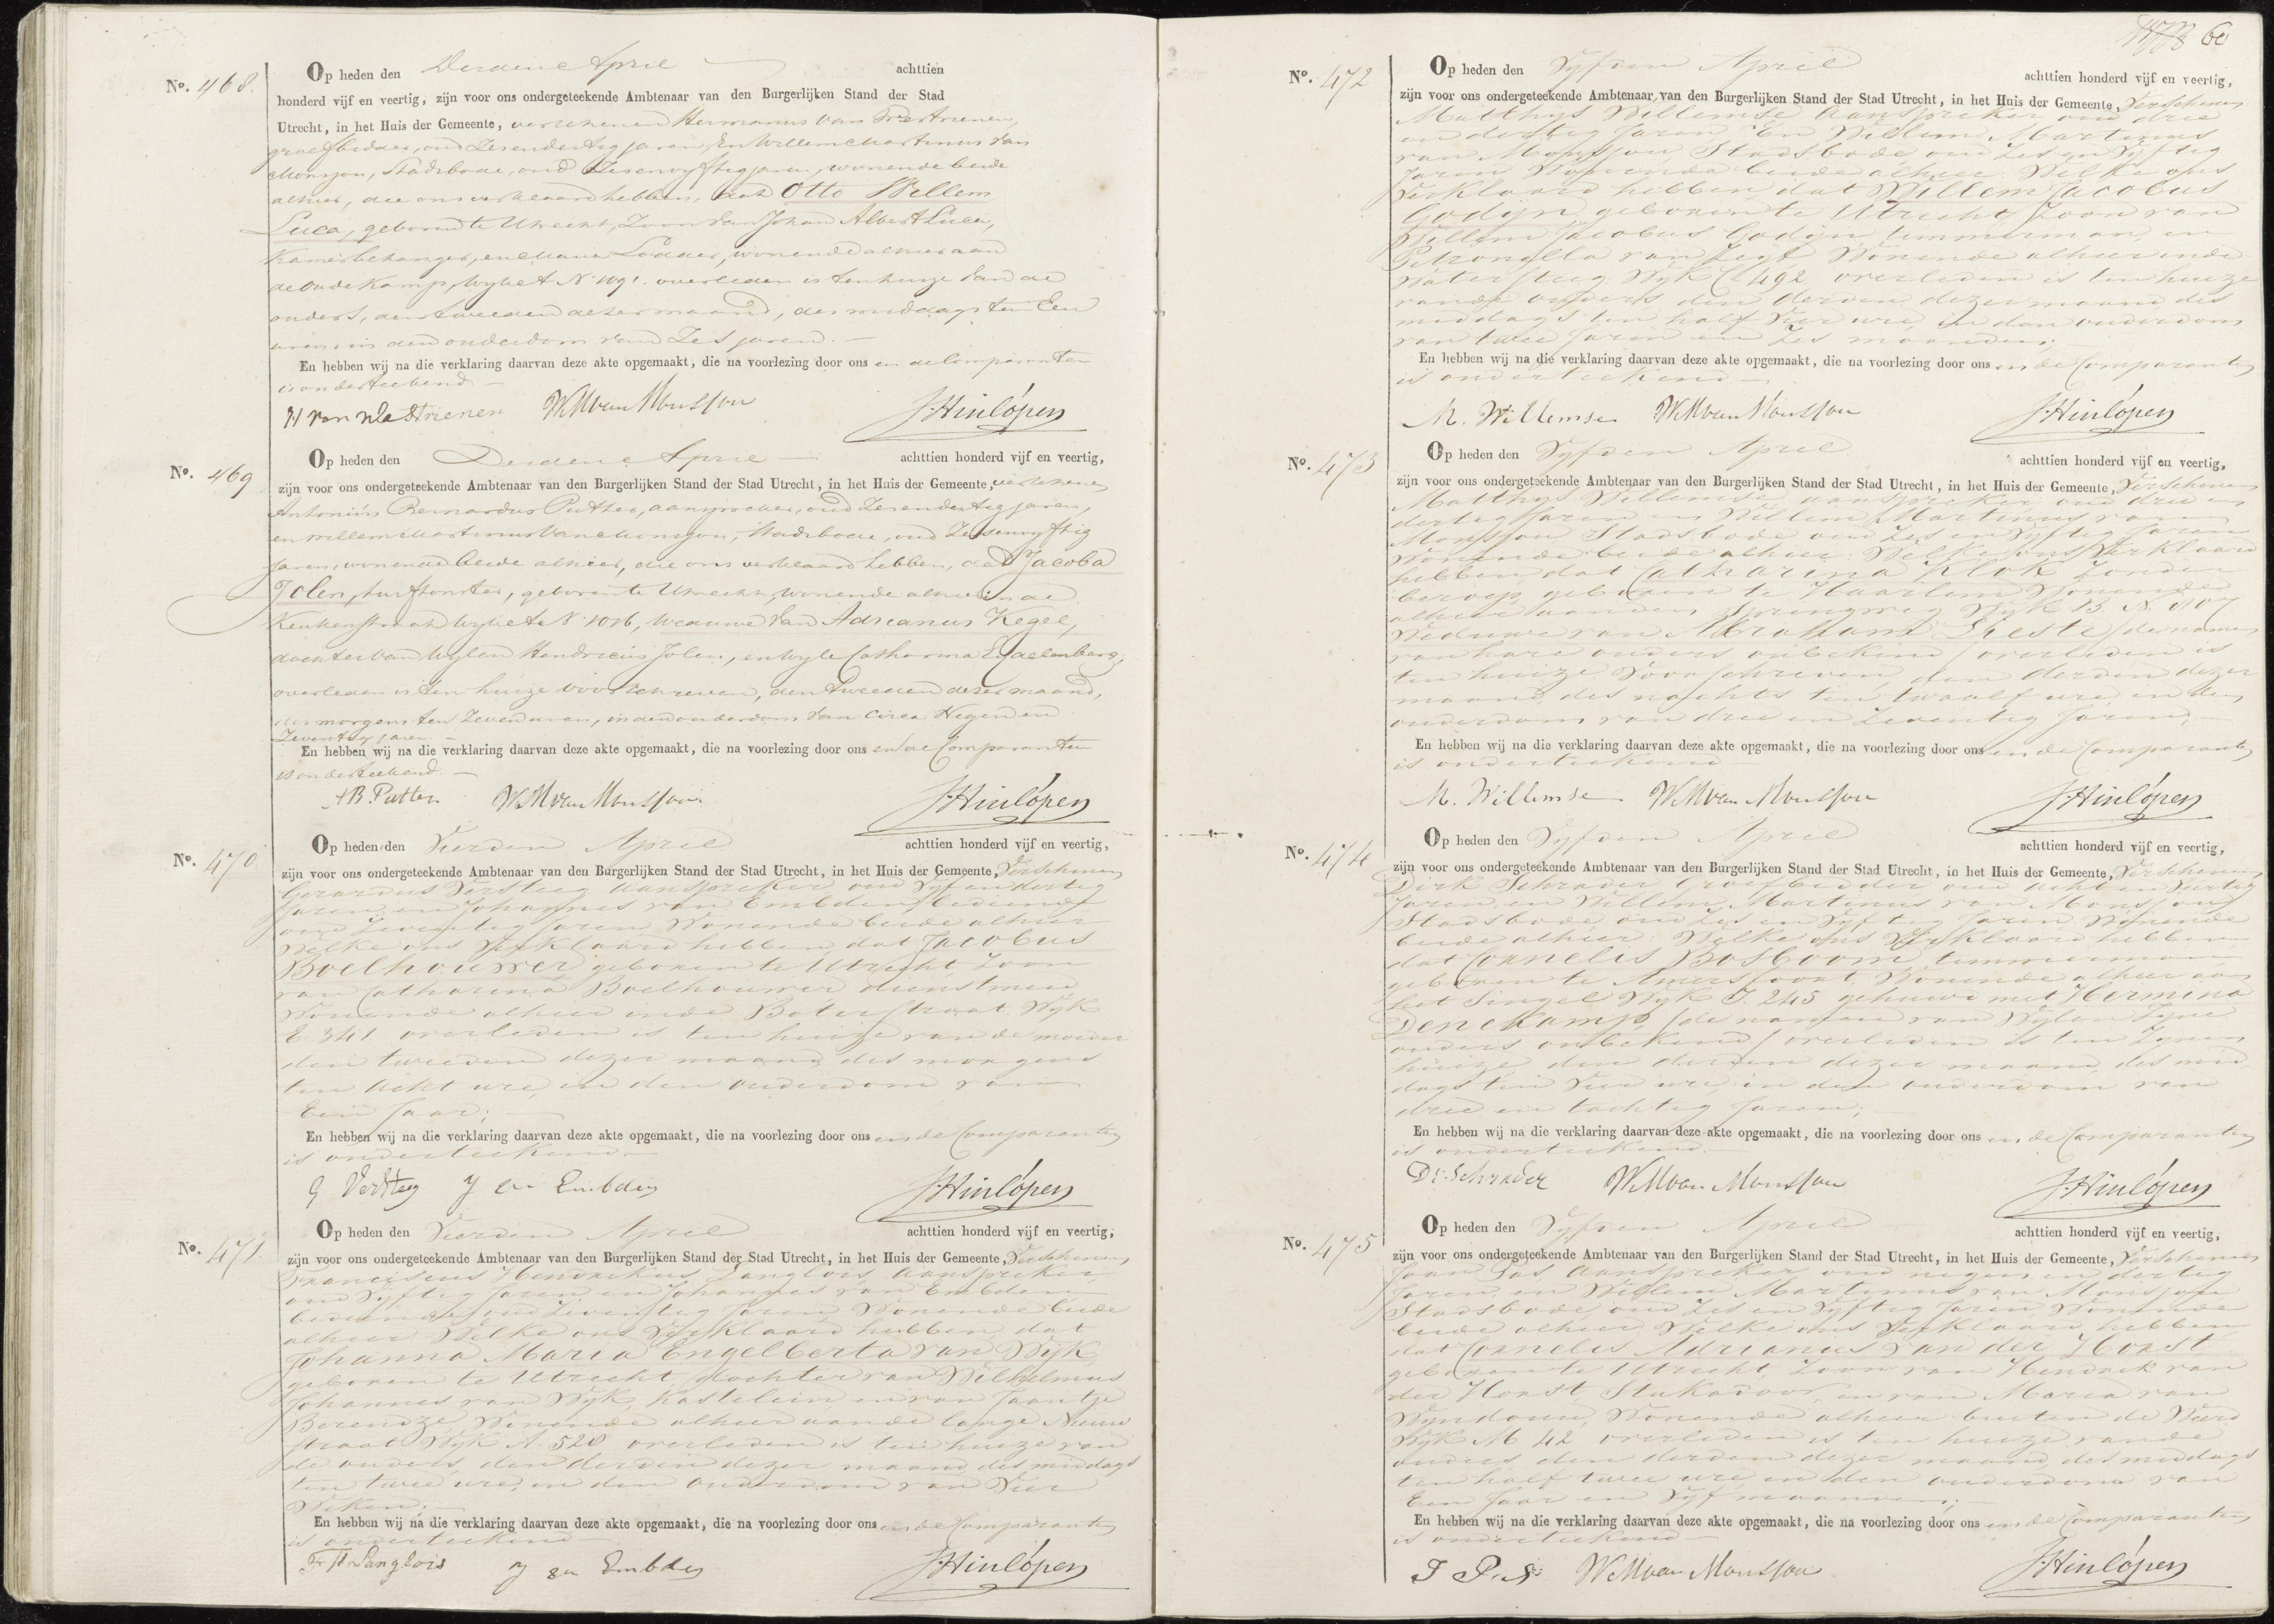 No. 468.
Op heden den Derden April achttien
honderd vijf en veertig, zijn voor ons ondergeteekende Ambtenaar van den Burgerlijken Stand der Stad
Utrecht, in het Huis der Gemeente, verschenen Hermanus van
groefbidder, oud Zesendertig jaren, En Willem Martinus van
Monsjou, Stadsbode, oud Zesenvyftig jaren, wonende beide
alhier, die ons verklaard hebben, dat Otto Willem
Luca, geboren te Utrecht, Zoon van Johan Albert Luca,
Kamerbehanger, en Maria Lodder, wonende alhier aan
de Oude Kamp, Wyk A No 1091. overleden is ten huize van de
ouders, den tweeden dezer maand, des middags ten Een
ure in den ouderdom van Zes jaren.
En hebben wij na die verklaring daarvan deze akte opgemaakt, die na voorlezing door ons en de Comparanten
is onderteekend
WM van Monsjou J. Hinlópen
No. 469
Op heden den Derden April achttien honderd vijf en veertig,
zijn voor ons ondergeteekende Ambtenaar van den Burgerlijken Stand der Stad Utrecht, in het Huis der Gemeente, verschenen
Antonius Bernardus Putter, aanspreker, oud Zesendertig jaren,
en Willem Martinus van Monsjou, Stadsbode, oud Zesenvyftig
jaren, wonende beide alhier, die ons verklaard hebben, dat Jacoba
Jolen, turftonster, geboren te Utrecht, wonende alhier in de
Keukenstraat Wyk A No 1016, Weduwe van Adrianus Kegel,
dochter van Wylen Hendricus Jolen, en Wyle Catharina
overleden is ten huize voorschreven, den tweeden dezer maand,
des morgens ten Zeven uren, in den ouderdom van circa Negen en
Zeventig jaren.
En hebben wij na die verklaring daarvan deze akte opgemaakt, die na voorlezing door ons en de Comparanten
is onderteekend.
AB. Putter WM van Monsjou J. Hinlópen
No. 470.
Op heden den Vierden April achttien honderd vijf en veertig,
zijn voor ons ondergeteekende Ambtenaar van den Burgerlijken Stand der Stad Utrecht, in het Huis der Gemeente, Verschenen
Gerardus Versteeg aanspreker oud Vyf en dertig
Jaren, en Johannes van Embden bediende
oud Zeventig Jaren, Wonende beide alhier
Welke ons Verklaard hebben dat Jacobus
Boelhouwer geboren te Utrecht, Zoon
van Catharina Boelhouwer dienstmeid
Wonende alhier inde Boterstraat Wyk
E. 341 overleden is ten huize van de moeder
den tweeden dezer maand des morgens
ten Acht ure, in den ouderdom van
Een Jaar;
En hebben wij na die verklaring daarvan deze akte opgemaakt, die na voorlezing door ons en de Comparanten
is onderteekend
G Versteeg J van Embden J. Hinlópen
No. 471.
Op heden den Vierden April achttien honderd vijf en veertig,
zijn voor ons ondergeteekende Ambtenaar van den Burgerlijken Stand der Stad Utrecht, in het Huis der Gemeente, Verschenen
Franciscus Hendrikus Langlois, aanspreker,
oud Vyftig Jaren en Johannes van Embden
bediende oud Zeventig Jaren, Wonende beide
alhier Welke ons Verklaard hebben dat
Johanna Maria Engelberta van Wyk,
geboren te Utrecht, dochter van Wilhelmus
Johannes van Wyk, Kastelein en van Jaantje
Berendze, Wonende alhier aande lange Nieuw
straat Wyk A. 528 overleden is ten huize van
de ouders, den derden dezer maand des middags
ten twee ure, in den ouderdom van Vier
Weken;
En hebben wij na die verklaring daarvan deze akte opgemaakt, die na voorlezing door ons en de Comparanten
is onderteekend
F H Langlois J van Embden J. Hinlópen
60
No. 472
Op heden den Vyfden April achttien honderd vijf en veertig,
zijn voor ons ondergeteekende Ambtenaar van den Burgerlijken Stand der Stad Utrecht, in het Huis der Gemeente, Verschenen
Matthys Willemse aanspreker oud drie
en dertig Jaren, En Willem Martinus
van Monsjou Stadsbode oud Zes en Vyftig
Jaren Wonende beide alhier Welke ons
Verklaard hebben, dat Willem Jacobus
Godijn, geboren te Utrecht, Zoon van
Willem Jacobus Godijn timmerman, en
Petronella van Zeyl Wonende alhier inde
Watersteeg Wyk C 492 overleden is ten huize
vande ouders den derden dezer maand des
middags ten half Vier ure, in den ouderdom
van twee Jaren en Zes maanden;
En hebben wij na die verklaring daarvan deze akte opgemaakt, die na voorlezing door ons en de Comparanten
is onderteekend
M. Willemse WM van Monsjou J. Hinlópen
No. 473
Op heden den Vyfden April achttien honderd vijf en veertig,
zijn voor ons ondergeteekende Ambtenaar van den Burgerlijken Stand der Stad Utrecht, in het Huis der Gemeente, Verschenen
Matthys Willemse aanspreker oud drie en
dertig Jaren en Willem Martinus van
Monsjou Stadsbode oud Zes en Vyftig Jaren
Wonende beide alhier Welke ons Verklaard
hebben dat Catharina Klok Zonder
beroep, geboren te Haarlem Wonende
alhier aanden Springweg Wyk B. N. 107
Weduwe van Abraham (de namen
van hare ouders onbekend) overleden is
ten huize Voorschreven den derden dezer
maand des nachts ten twaalf ure in den
ouderdom van drie en Zeventig Jaren;
En hebben wij na die verklaring daarvan deze akte opgemaakt, die na voorlezing door ons en de Comparanten
is onderteekend
M. Willemse WM van Monsjou J. Hinlópen
No. 474
Op heden den Vyfden April achttien honderd vijf en veertig,
zijn voor ons ondergeteekende Ambtenaar van den Burgerlijken Stand der Stad Utrecht, in het Huis der Gemeente, Verschenen
Dirk Schrader Groefbidder oud acht en Veertig
Jaren en Willem Martinus van Monsjou
Stadsbode oud Zes en Vyftig Jaren Wonende
beide alhier Welke ons Verklaard hebben
dat Cornelis Bosboom timmerman
geboren te Amersfoort, Wonende alhier aan
het Singel Wyk I. 245 gehuwd met Hermina
Denekamp, (de namen van Wylen Zyne
ouders onbekend) overleden is ten Zynen
huize den derden dezer maand des mid
dags ten Vier ure, in den ouderdom van
drie en tachtig Jaren;
En hebben wij na die verklaring daarvan deze akte opgemaakt, die na voorlezing door ons en de Comparanten
is onderteekend
Dk. Schrader WM van Monsjou J. Hinlópen
No. 475
Op heden den Vyfden April achttien honderd vijf en veertig,
zijn voor ons ondergeteekende Ambtenaar van den Burgerlijken Stand der Stad Utrecht, in het Huis der Gemeente, Verschenen
Jaan Pas aanspreker oud negen en dertig
Jaren en Willem Martinus van Monsjou
Stadsbode, oud Zes en Vyftig Jaren Wonende
beide alhier Welke ons Verklaard hebben
dat Cornelis Adrianus van der Horst
geboren te Utrecht, Zoon van Hendrik van
der Horst Stukadoor, en van Maria van
Wonende alhier buiten de Weerd
Wyk M 42 overleden is ten huize vande
ouders den derden dezer maand des middags
ten half twee ure in den ouderdom van
Een Jaar en Vyf maanden;
En hebben wij na die verklaring daarvan deze akte opgemaakt, die na voorlezing door ons en de Comparanten
is onderteekend
J Pas WM van Monsjou J. Hinlópen